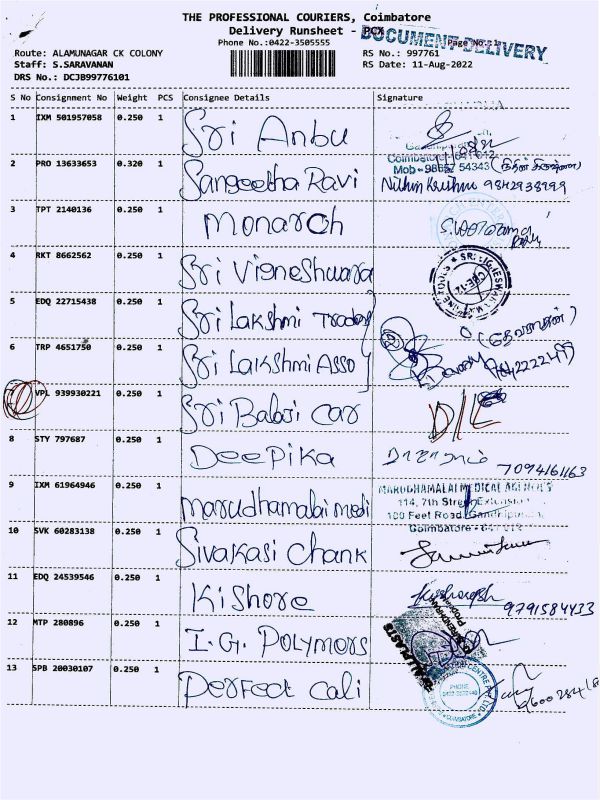 THE PROFESSIONAL COURIERS, Coimbatore
Delivery Runsheet -
DOCUMENT DELIVERY
Phone No.:0422-3505555
Route: ALAMUNAGAR CK COLONY
RS No.: 997761
Staff: S.SARAVANAN
RS Date: 11-Aug-2022
DRS No.: DCJB99776101
S No Consignment No Weight PCS Consignee Details Signature
1 IXM 501957058 0.250 1 Sri Anbu
Coimbatore - 641 012
2 PRO 13633653 0.320 1 Sangeetha Ravi Nithin Krishna 9842938999
3 TPT 2140136 0.250 1 Monarch
4 RKT 8662562 0.250 1 Sri Vigneshwara
5 EDQ 22715438 0.250 1 Sri Lakshmi Traders
6 TRP 4651750 0.250 1 Sri Lakshmi Asso
7 VPL 939930221 0.250 1 Sri Balaji Car D/L
8 STY 797687 0.250 1 Deepika 7094161163
9 IXM 61964946 0.250 1 marudhamalai medi MARUDHAMALAI MEDICAL AGENCIES
114, 7th Street Extension
100 Feet Road, Gandhipuram
Coimbatore - 641 012
10 SVK 60283138 0.250 1 Sivakasi Chank
11 EDQ 24539546 0.250 1 Kishore 9791584433
12 MTP 280896 0.250 1 I.G. Polymors
13 SPB 20030107 0.250 1 Perfect Cali
PHONE
COIMBATORE